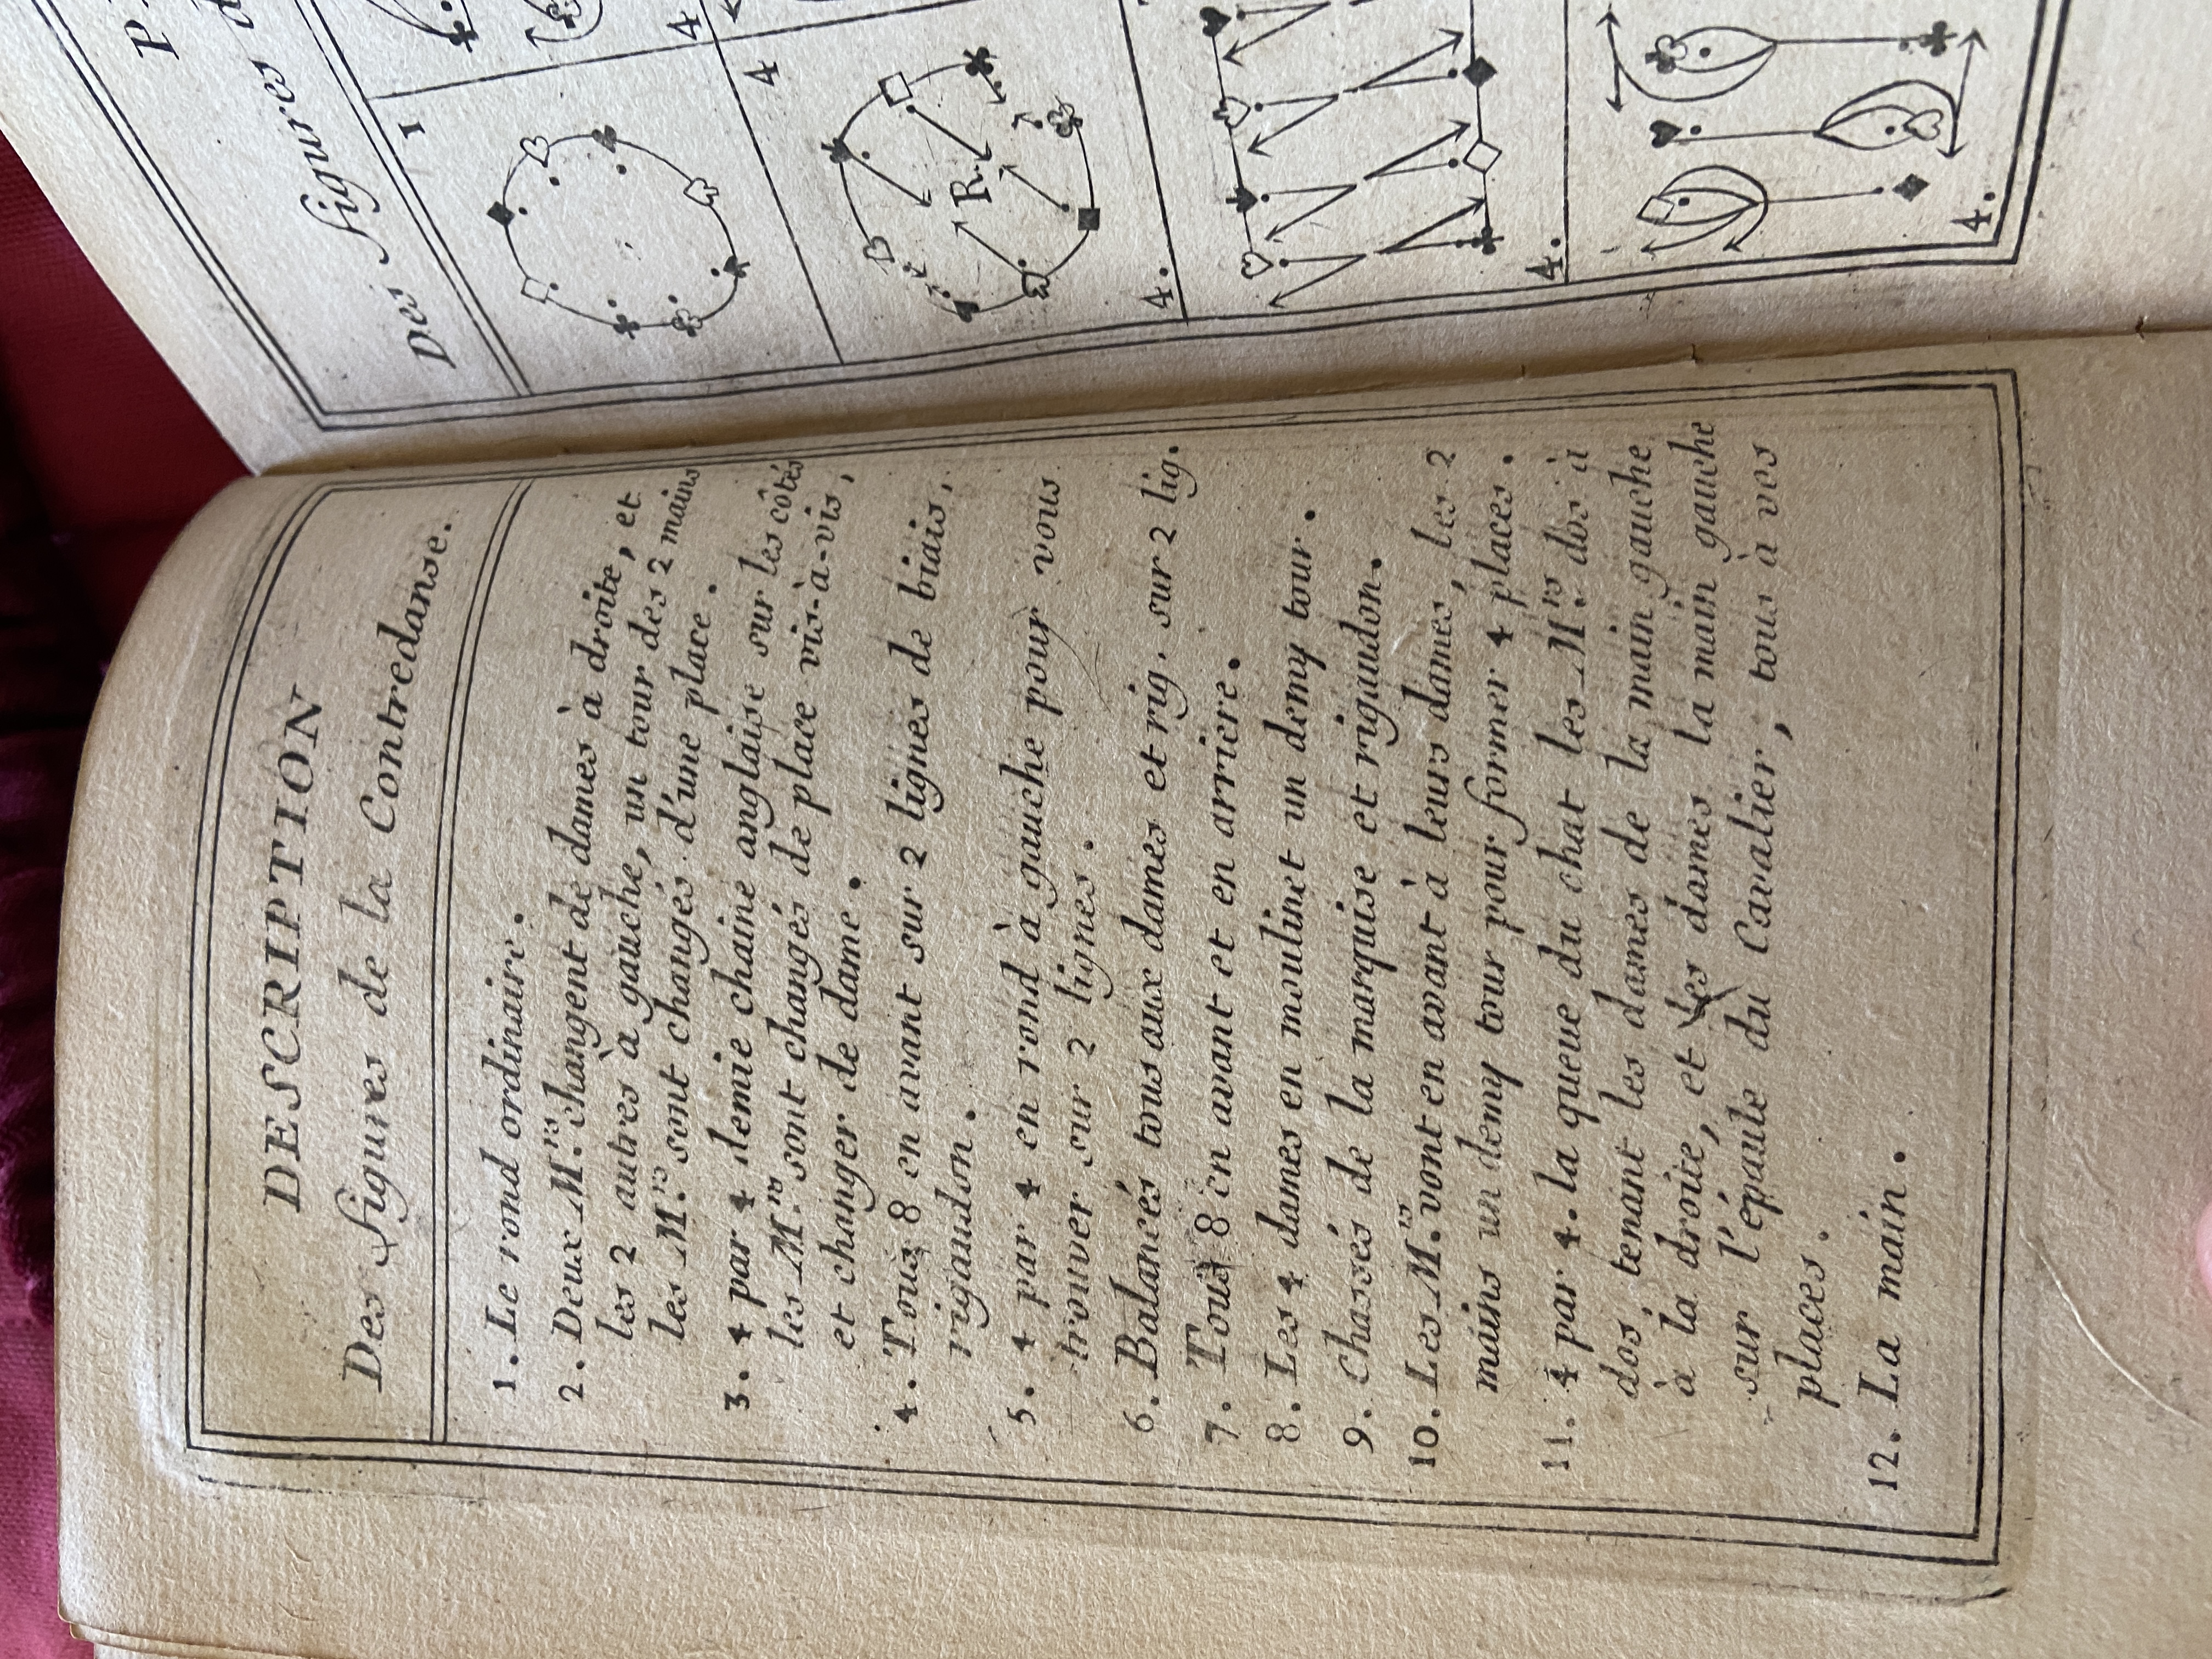 DESCRIPTION
Des figures de la Contredanse.
1. Le rond ordinaire.
2. Deux M.rs changent de dames à droite, et
les 2 autres à gauche, un tour des 2 mains
les M.rs sont changés d'une place.
3. 4 par 4 demie chaine anglaise sur les côtés
les M.rs sont changés de place vis-à-vis,
et changer de dame.
4. Tous 8 en avant sur 2 lignes de biais,
rigaudon.
5. 4 par 4 en rond à gauche pour vous
trouver sur 2 lignes.
6. Balancés tous aux dames et rig. sur 2 lig.
7. Tous 8 en avant et en arriere.
8. Les 4 dames en moulinet un demy tour.
9. Chassés de la marquise et rigaudon.
10. Les M.rs vont en avant à leurs dames, les 2
mains un demy tour pour former 4 places.
11. 4 par 4. la queue du chat les M.rs dos à
dos tenant les dames de la main gauche
à la droite, et les dames la main gauche
sur l'épaule du Cavalier, tous à ves
places.
12. La main.
Des figures
1
4
4
R.
4.
4.
4.